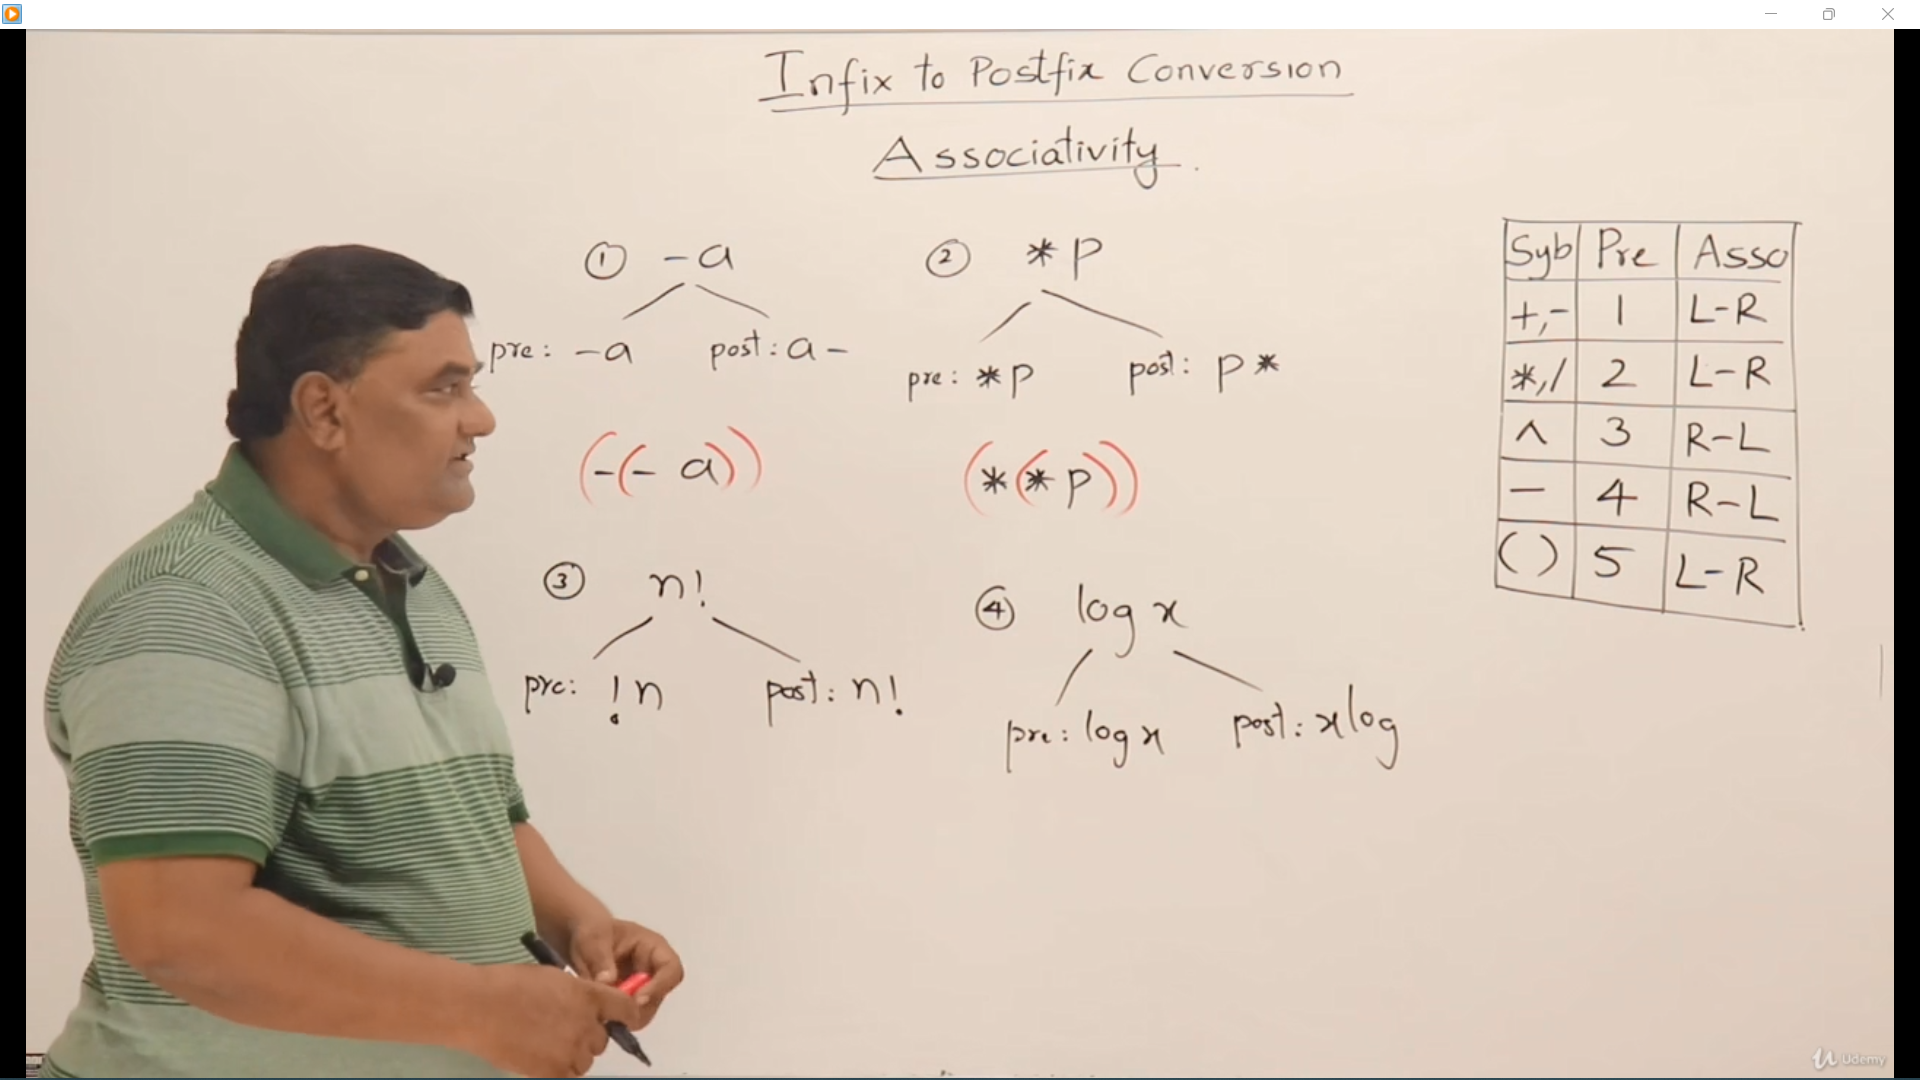 Infix to Postfix Conversion
Associativity.
① -a
pre: -a post: a-
(-(- a))
② *p
pre: *p post: p*
(*(*p))
③ n!
pre: !n post: n!
④ log x
pre: log x post: x log
Syb Pre Asso
+,- 1 L-R
*,/ 2 L-R
^ 3 R-L
- 4 R-L
( ) 5 L-R
Udemy